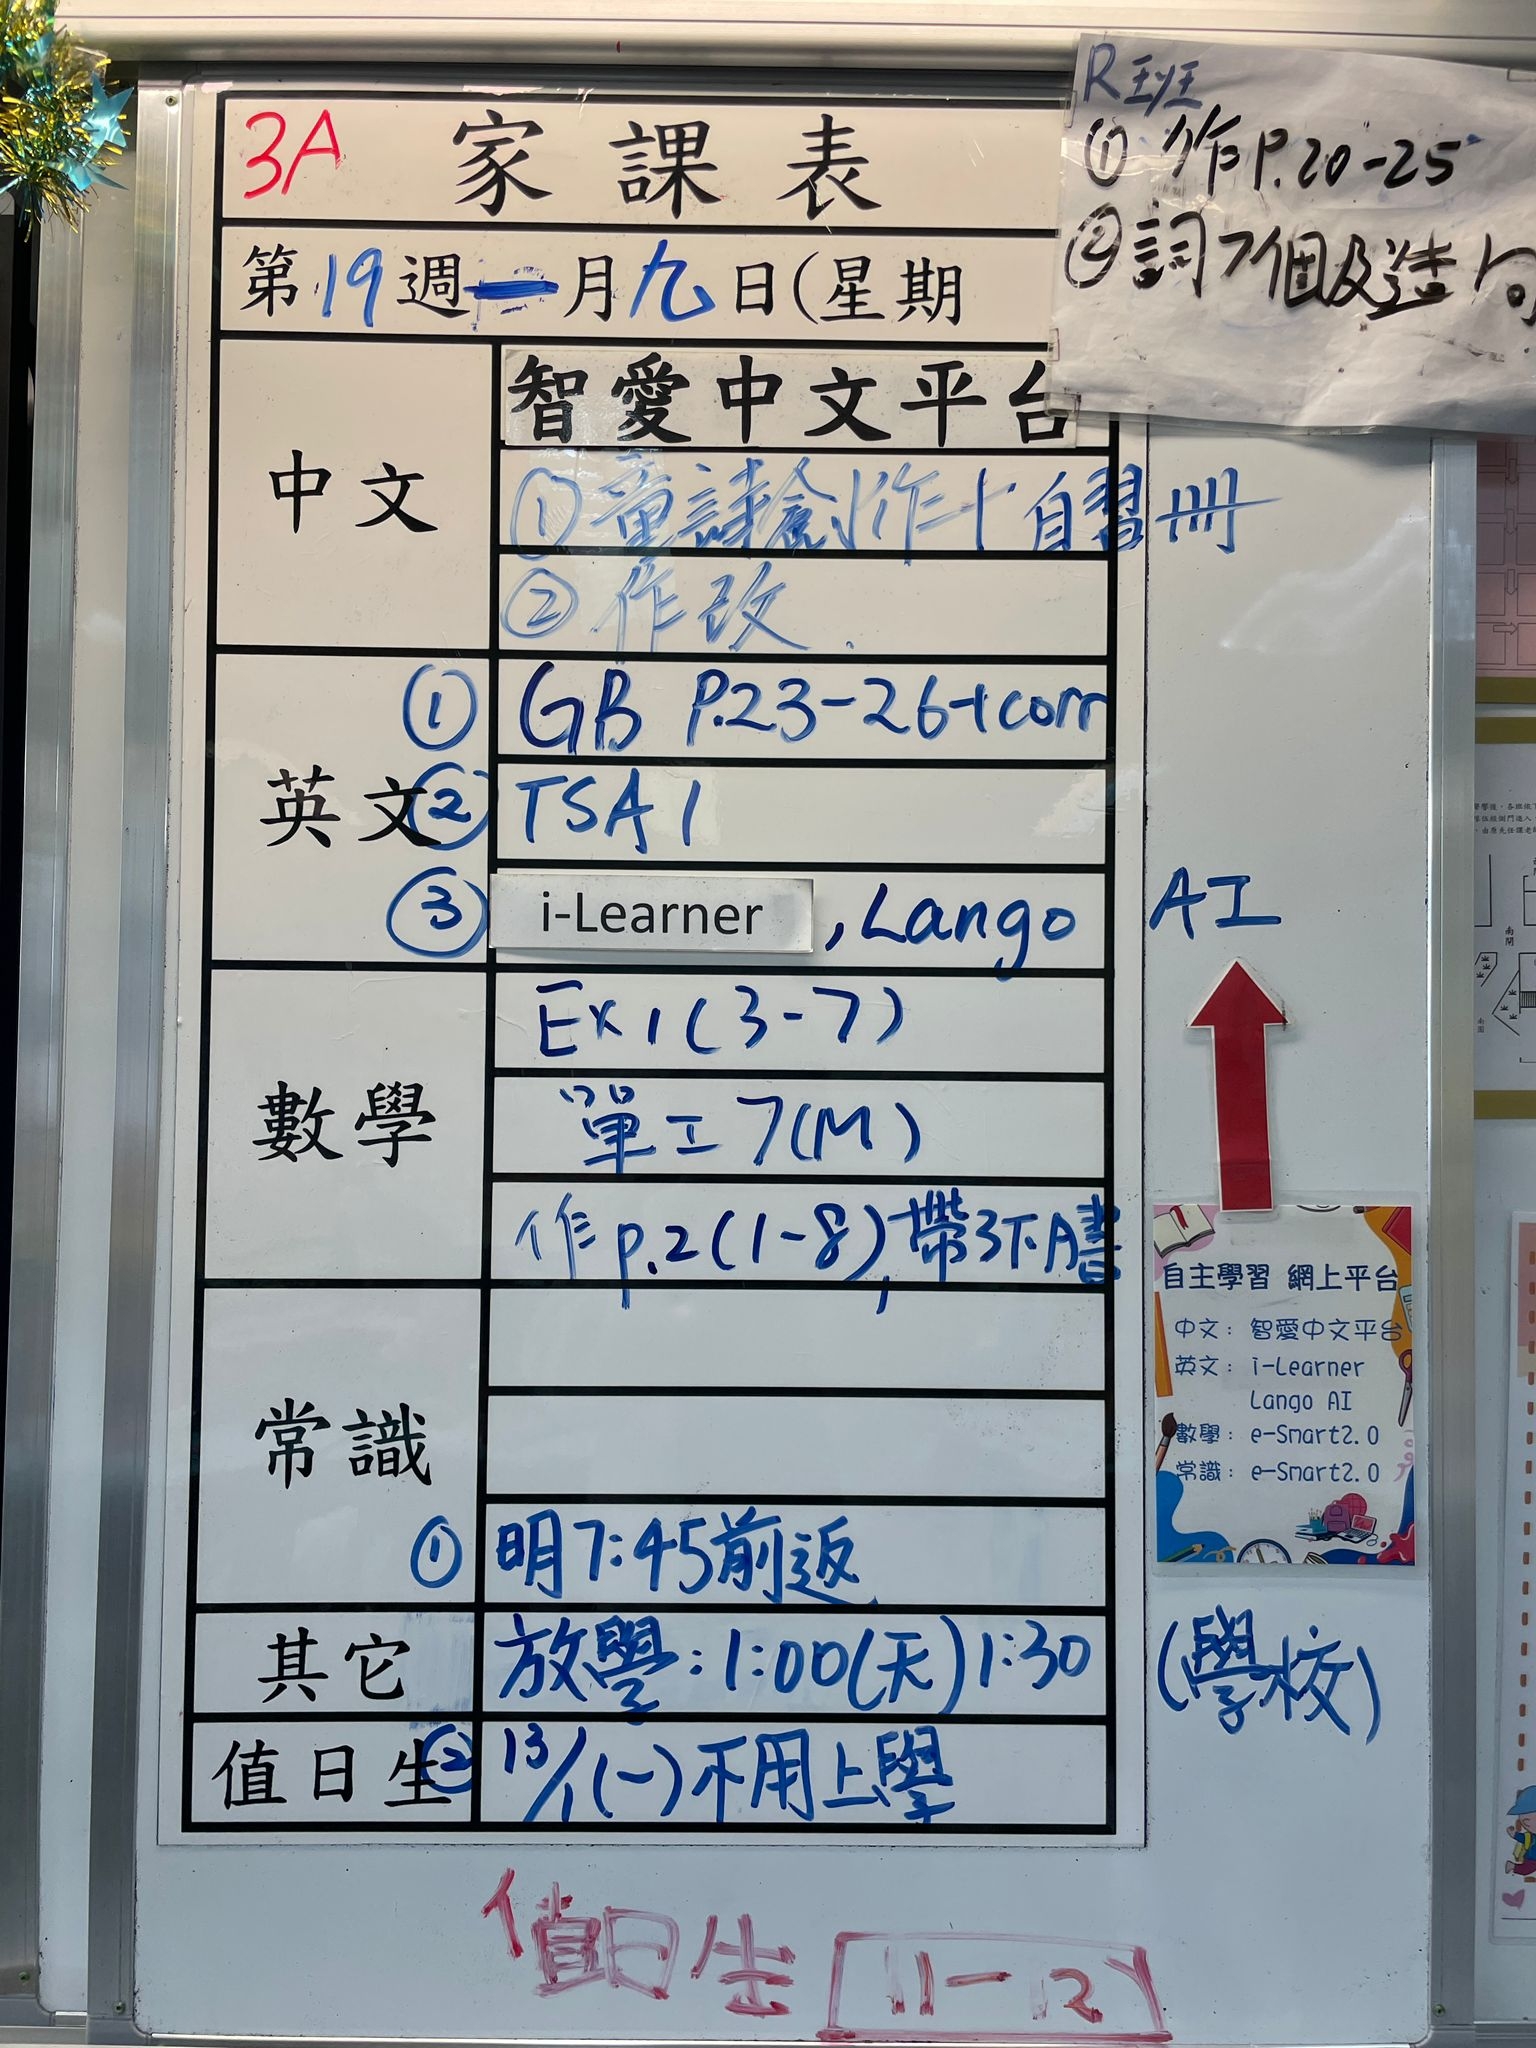 3A 家課表
第19週一月九日(星期
R班
① 作P.20-25
② 詞7個及造句
中文
智愛中文平台
① 童詩創作+自習冊
② 作改.
英文
① GB P.23-26+corr
② TSA 1
③ i-Learner, Lango AI
數學
Ex 1 (3-7)
單工7(M)
作p.2(1-8), 帶3下A書
常識
① 明7:45前返
其它
放學:1:00(天)1:30 (學校)
值日生
② 13/1(一)不用上學
自主學習 網上平台
中文: 智愛中文平台
英文: i-Learner
Lango AI
數學: e-Smart2.0
常識: e-Smart2.0
值日生 11-12